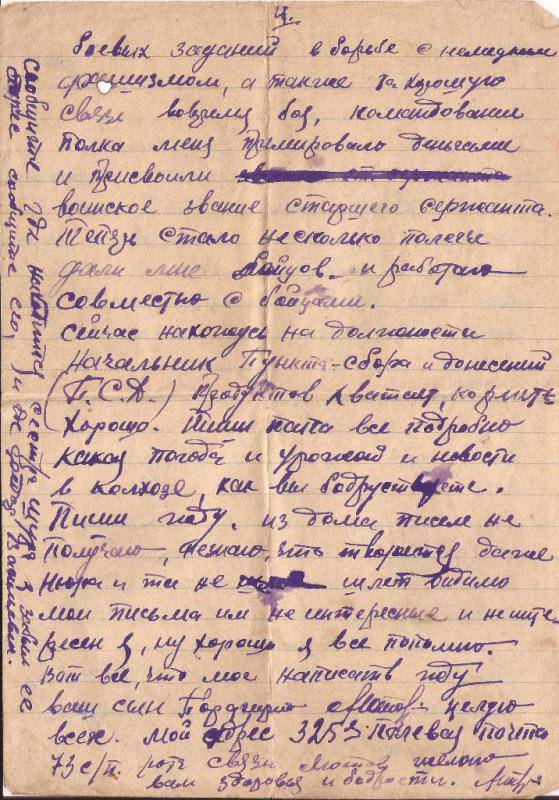 4.
боевых заданий в борьбе с немецким
фашизмом, а также за хорошую
связь вовремя боя, командование
полка меня премировало деньгами
и присвоили
воинское звание старшего сержанта.
Теперь стало несколько полегче
дали мне бойцов и работаю
совместно с бойцами.
Сейчас нахожусь на должности
начальник Пункта сбора и донесений
(П.С.Д.) Продуктов хватает, кормить
хорошо. Пиши папа все подробно
какая погода и урожай и новости
в колхозе, как вы бодрствуете.
Пиши жду, из дома писем не
получаю, незнаю, что творится даже
Нюра и та не шлет видимо
мои письма им не интересные и неинте
ресен я, ну хорошо я все попомню.
Вот все, что мог написать жду
ваш сын целую
всех. Мой адрес 3253 Полевая почта
73 с/п. рота связи желаю
вам здоровья и бодрости.
сообщите где находится сестра Шура я забыл ее
адрес сообщите его, и де